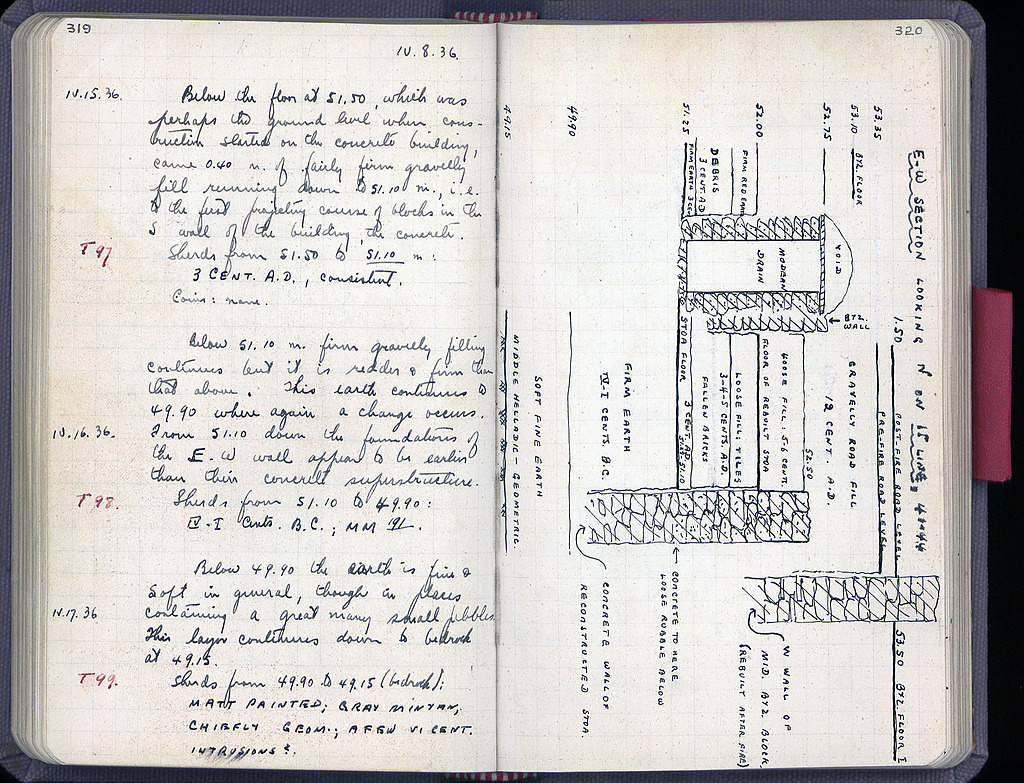 319
IV.8.36.
IV.15.36. Below the floor at 51.50, which was
perhaps the ground level when cons-
truction started on the concrete building,
came 0.40 m. of fairly firm gravelly
fill running down to 51.10 m., i.e.
to the first projecting course of blocks in the
S wall of the building, the concrete.
T97 Sherds from 51.50 to 51.10 m:
3 CENT. A.D., consistent.
Coins: none.
Below 51.10 m. firm gravelly filling
continues but it is redder & firmer than
that above. This earth continues to
49.90 where again a change occurs.
IV.16.36. From 51.10 down the foundations of
the E-W wall appear to be earlier
than their concrete superstructure.
T98. Sherds from 51.10 to 49.90:
IV-I Cents. B.C.; MM
Below 49.90 the earth is fine &
soft in general, though in places
IV.17.36 containing a great many small pebbles.
This layer continues down to bedrock
at 49.15.
T99. Sherds from 49.90 to 49.15 (bedrock):
MATT PAINTED; GRAY MINYAN;
CHIEFLY GEOM.; A FEW VI CENT.
INTRUSIONS?.
320
E-W SECTION LOOKING N ON 15 LINE,
53.35
53.10 BYZ. FLOOR
52.75
52.00
51.25
49.90
49.15
FIRM RED EARTH
DEBRIS
3 CENT. A.D.
FIRM EARTH 3 CENT
VOID
MODERN
DRAIN
BYZ.
WALL
1.50
POST-FIRE ROAD LEVEL
PRE-FIRE ROAD LEVEL
GRAVELLY ROAD FILL
12 CENT. A.D.
52.50
LOOSE FILL: 5-6 CENT.
FLOOR OF REBUILT STOA
LOOSE FILL; TILES
3-4-5 CENTS. A.D.
FALLEN BRICKS
STOA FLOOR 3 CENT. A.D. 51.10
FIRM EARTH
IV-I CENTS. B.C.
SOFT FINE EARTH
MIDDLE HELLADIC - GEOMETRIC
CONCRETE TO HERE
LOOSE RUBBLE BELOW
CONCRETE WALL OF
RECONSTRUCTED STOA.
53.50 BYZ. FLOOR I
W WALL OF
MID. BYZ. BLOCK
(REBUILT AFTER FIRE)